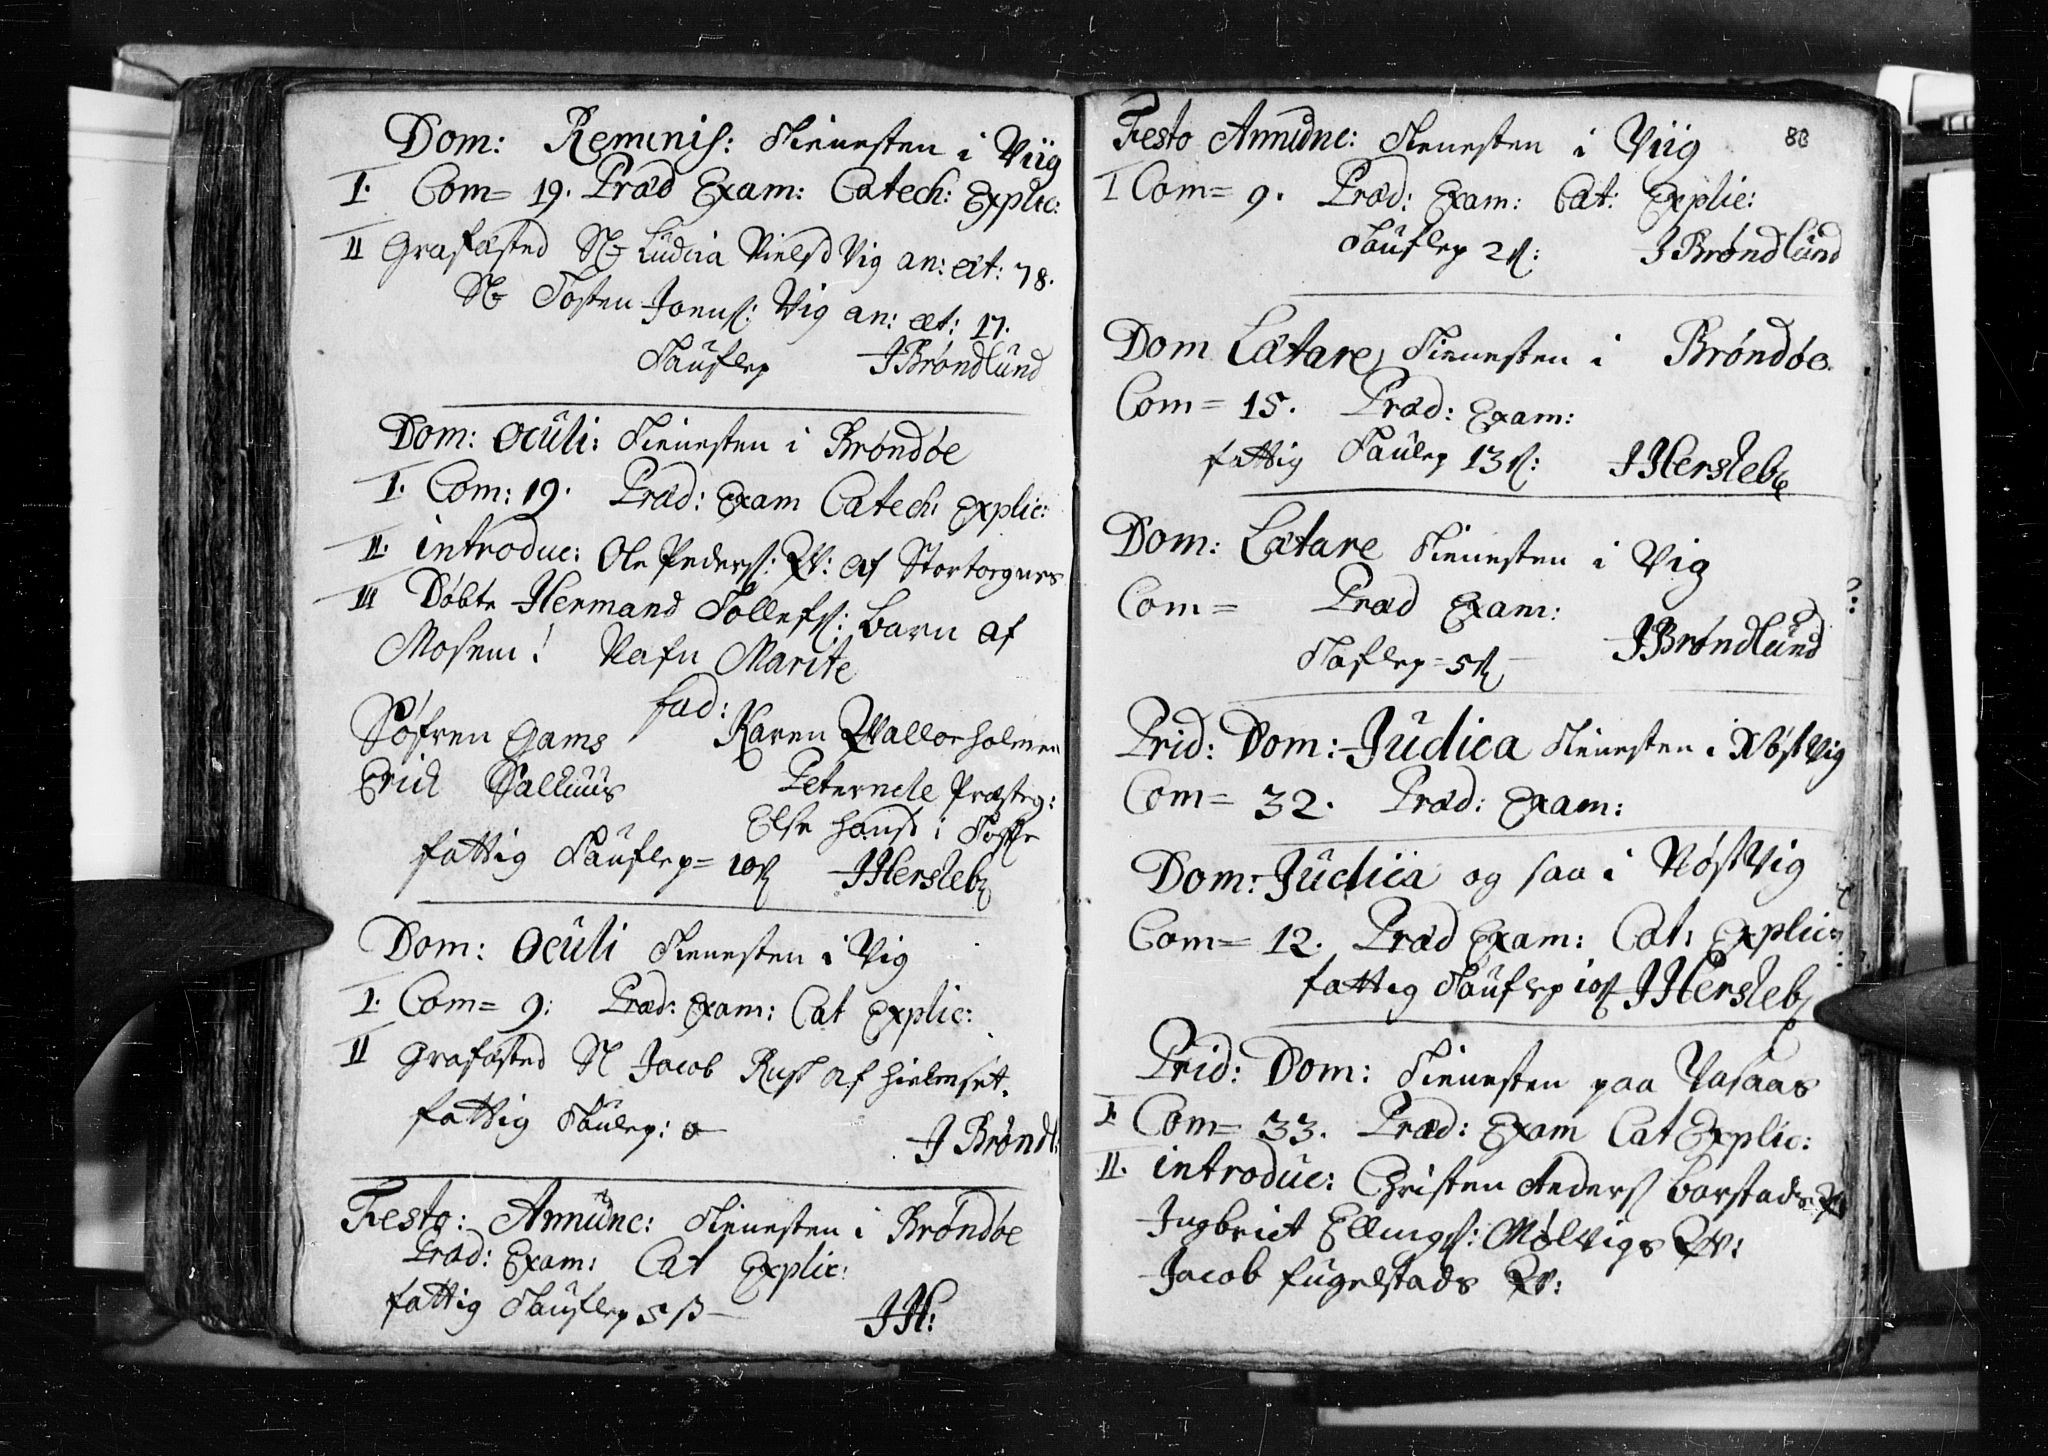 Dom: Reminis: Tienesten i Viig
I. Com= 19. Præd Exam: Catech: Explic:
II Grafæsted Sl Ludvia Nielsd Vig an: æt: 78.
Sl Tosten Jonns: Vig an: æt: 17.
Taufler JBrøndlund
Dom: Oculi: Tienesten i Brøndøe
I. Com: 19. Præd: Exam Catech: Explic:
II. introduc: Ole Peders: Qv: af Stortorgnes
III Døbte Hermand Tollefs: barn af
Mosem! Nafn Marite
fad:
Søfren Gams Karen Qvalloeholmen
Erich Salhuus Peternele Præsteg:
Else Hansd i Toffte
fattig Tauflep= 10s JHersleb
Dom: Oculi Tienesten i Vig
I. Com= 9: Præd: Exam: Cat Explic:
II Grafæsted Sl Jacob Rush af Hielmset.
fattig Taulep: o J Brøndl:
Festo: Annunc: Tienesten i Brøndøe
Præd: Exam: Cat Explic:
fattig Tauflep 5 ß JH:
88
Festo Annunc: Tienesten i Viig
I Com= 9. Præd: Exam: Cat: Explic:
Tauflep 2s: JBrøndlund
Dom Lætare, Tienesten i Brøndøe.
Com= 15. Præd: Exam:
fattig Taulep 13s: JHersleb
Dom: Lætare Tienesten i Vig
Com= Præd Exam:
Taflep = 5s JBrøndlund
Prid: Dom: Judica Tienesten i Nøstvig
Com= 32. Præd: Exam:
Dom: Judica og saa i Nøstvig
Com= 12. Præd Exam: Cat: Explic:
fattig Tauflep 10s JHersleb
Prid: Dom: Tienesten paa Vasaas
I. Com= 33. Præd: Exam Cat Explic:
II. introduc: Christen Anders Borstads Qv
Ingbrict Ellings: Mølvigs Qv:
Jacob fugelstads Qv: